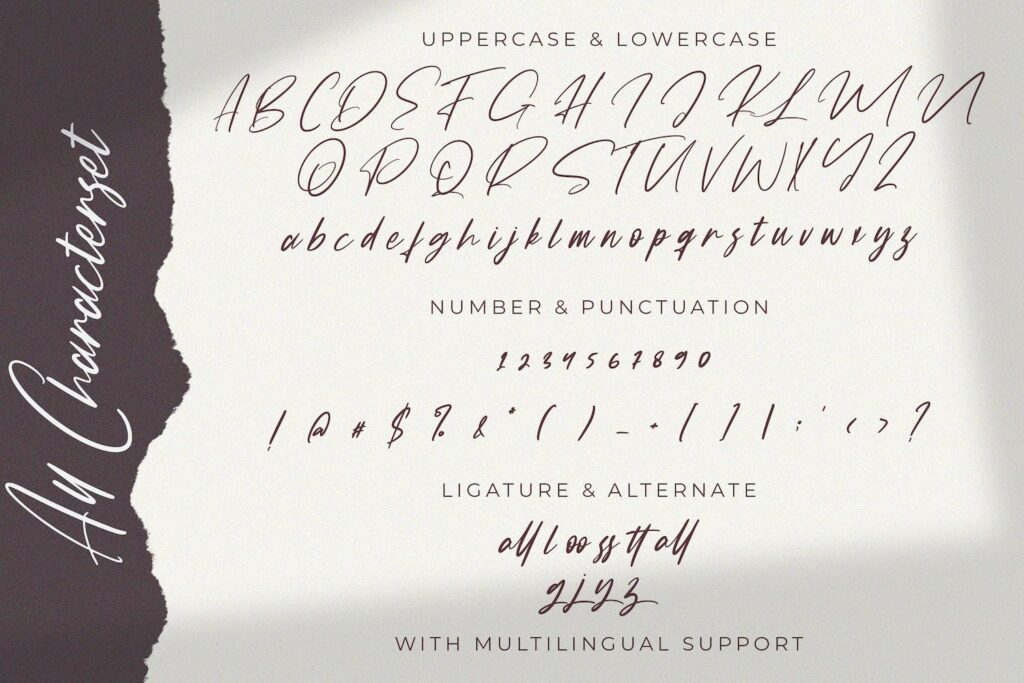 Ay Characterset
UPPERCASE & LOWERCASE
A B C D E F G H I J K L M N
O P Q R S T U V W X Y Z
a b c d e f g h i j k l m n o p q r s t u v w x y z
NUMBER & PUNCTUATION
1 2 3 4 5 6 7 8 9 0
! @ # $ % & * ( ) _ + [ ] | : ' < > ?
LIGATURE & ALTERNATE
all l oo ss tt all
g j y z
WITH MULTILINGUAL SUPPORT